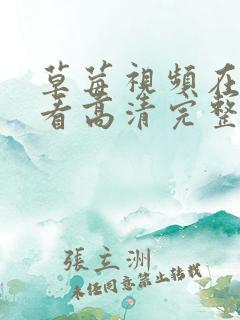 草莓視頻在
看高清完整
張立洲
未经同意禁止转载